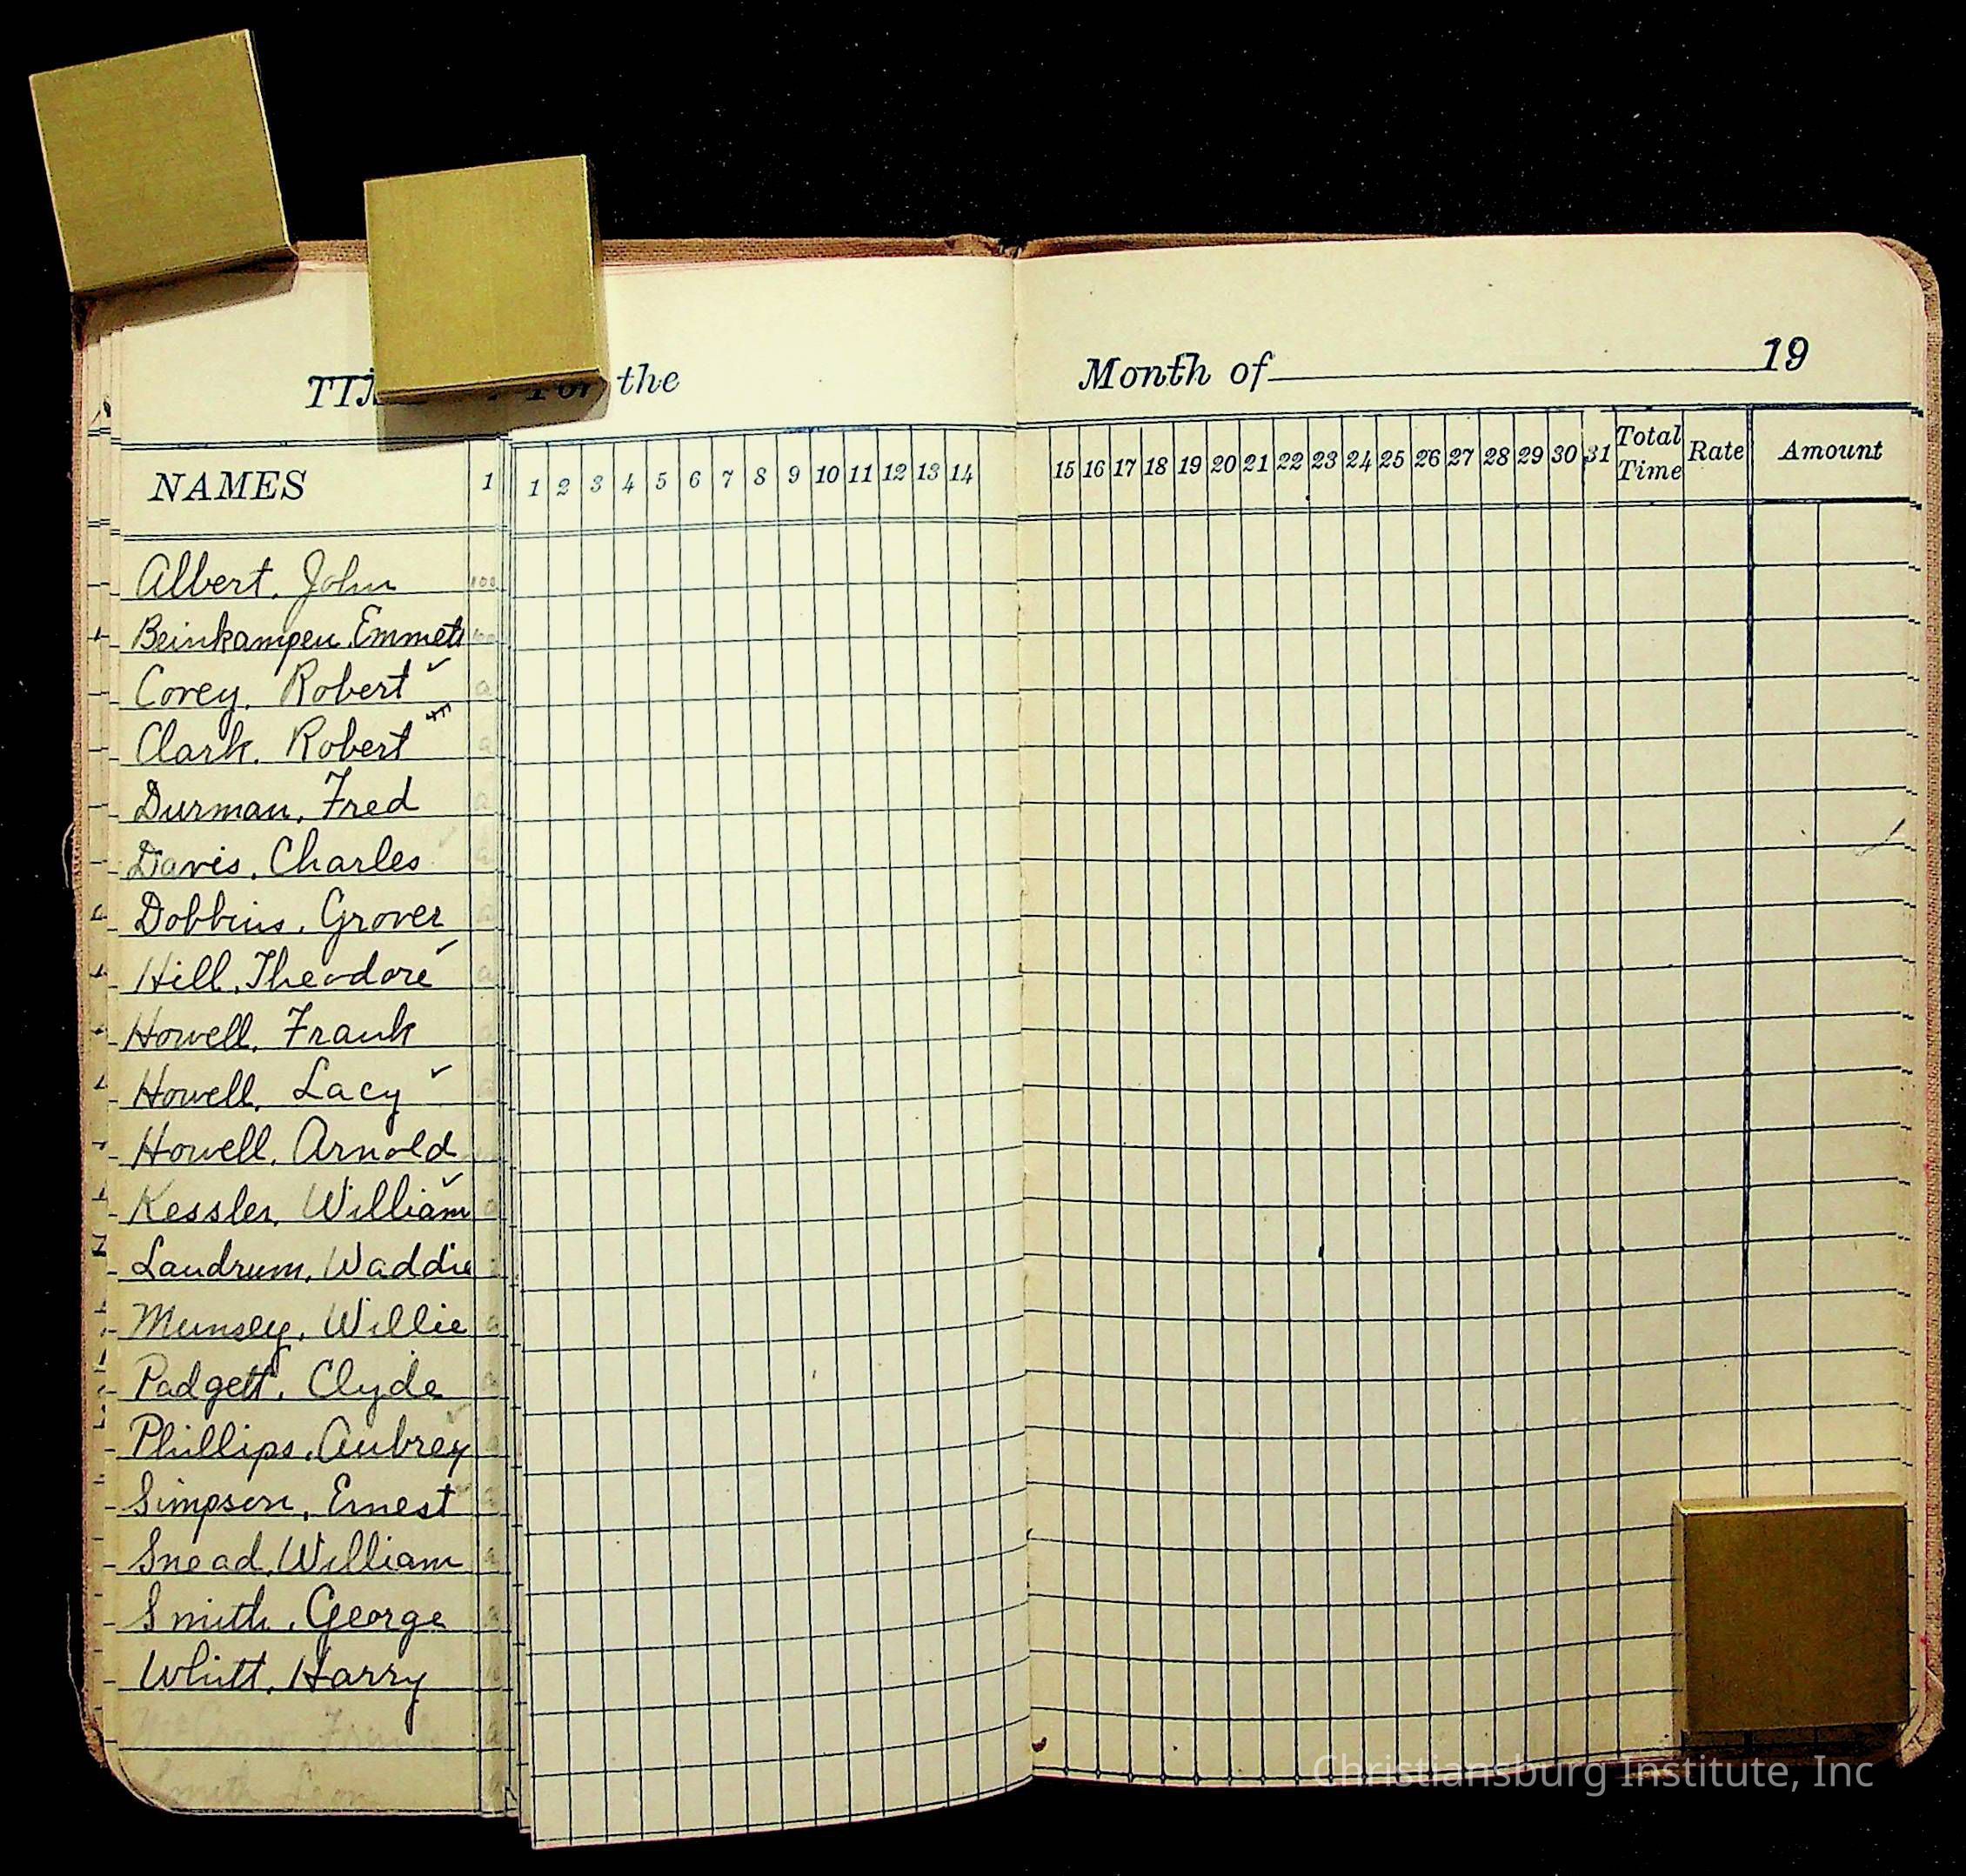 For the
Month of 19
NAMES 1 1 2 3 4 5 6 7 8 9 10 11 12 13 14 15 16 17 18 19 20 21 22 23 24 25 26 27 28 29 30 31 Total Time Rate Amount
Albert, John 100
Beinkampen, Emmett
Covey, Robert ✓
Clark, Robert
Durman, Fred a
Davis, Charles ✓ a
Dobbins, Grover a
Hill, Theodore ✓ a
Howell, Frank
Howell, Lacy ✓
Howell, Arnold
Kessler, William ✓
Landrum, Waddie
Munsey, Willie a
Padgett, Clyde
Phillips, Aubrey ✓
Simpson, Ernest
Snead, William a
Smith, George a
Whitt, Harry
Smith Leon
Christiansburg Institute, Inc